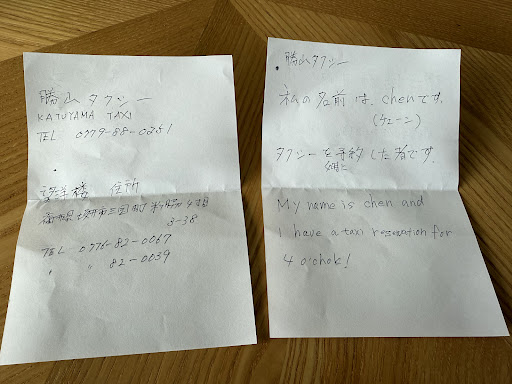 勝山タクシー
KATUYAMA TAXI
TEL 0779-88-0251
望洋楼 住所
福井県坂井市三国町米ヶ脇4丁目
3-38
TEL 0776-82-0067
" " 82-0039
勝山タクシー
私の名前は、chenです。
(チェーン)
タクシーを予約した者です。
4時に
My name is chen and
I have a taxi reservation for
4 o'clock!